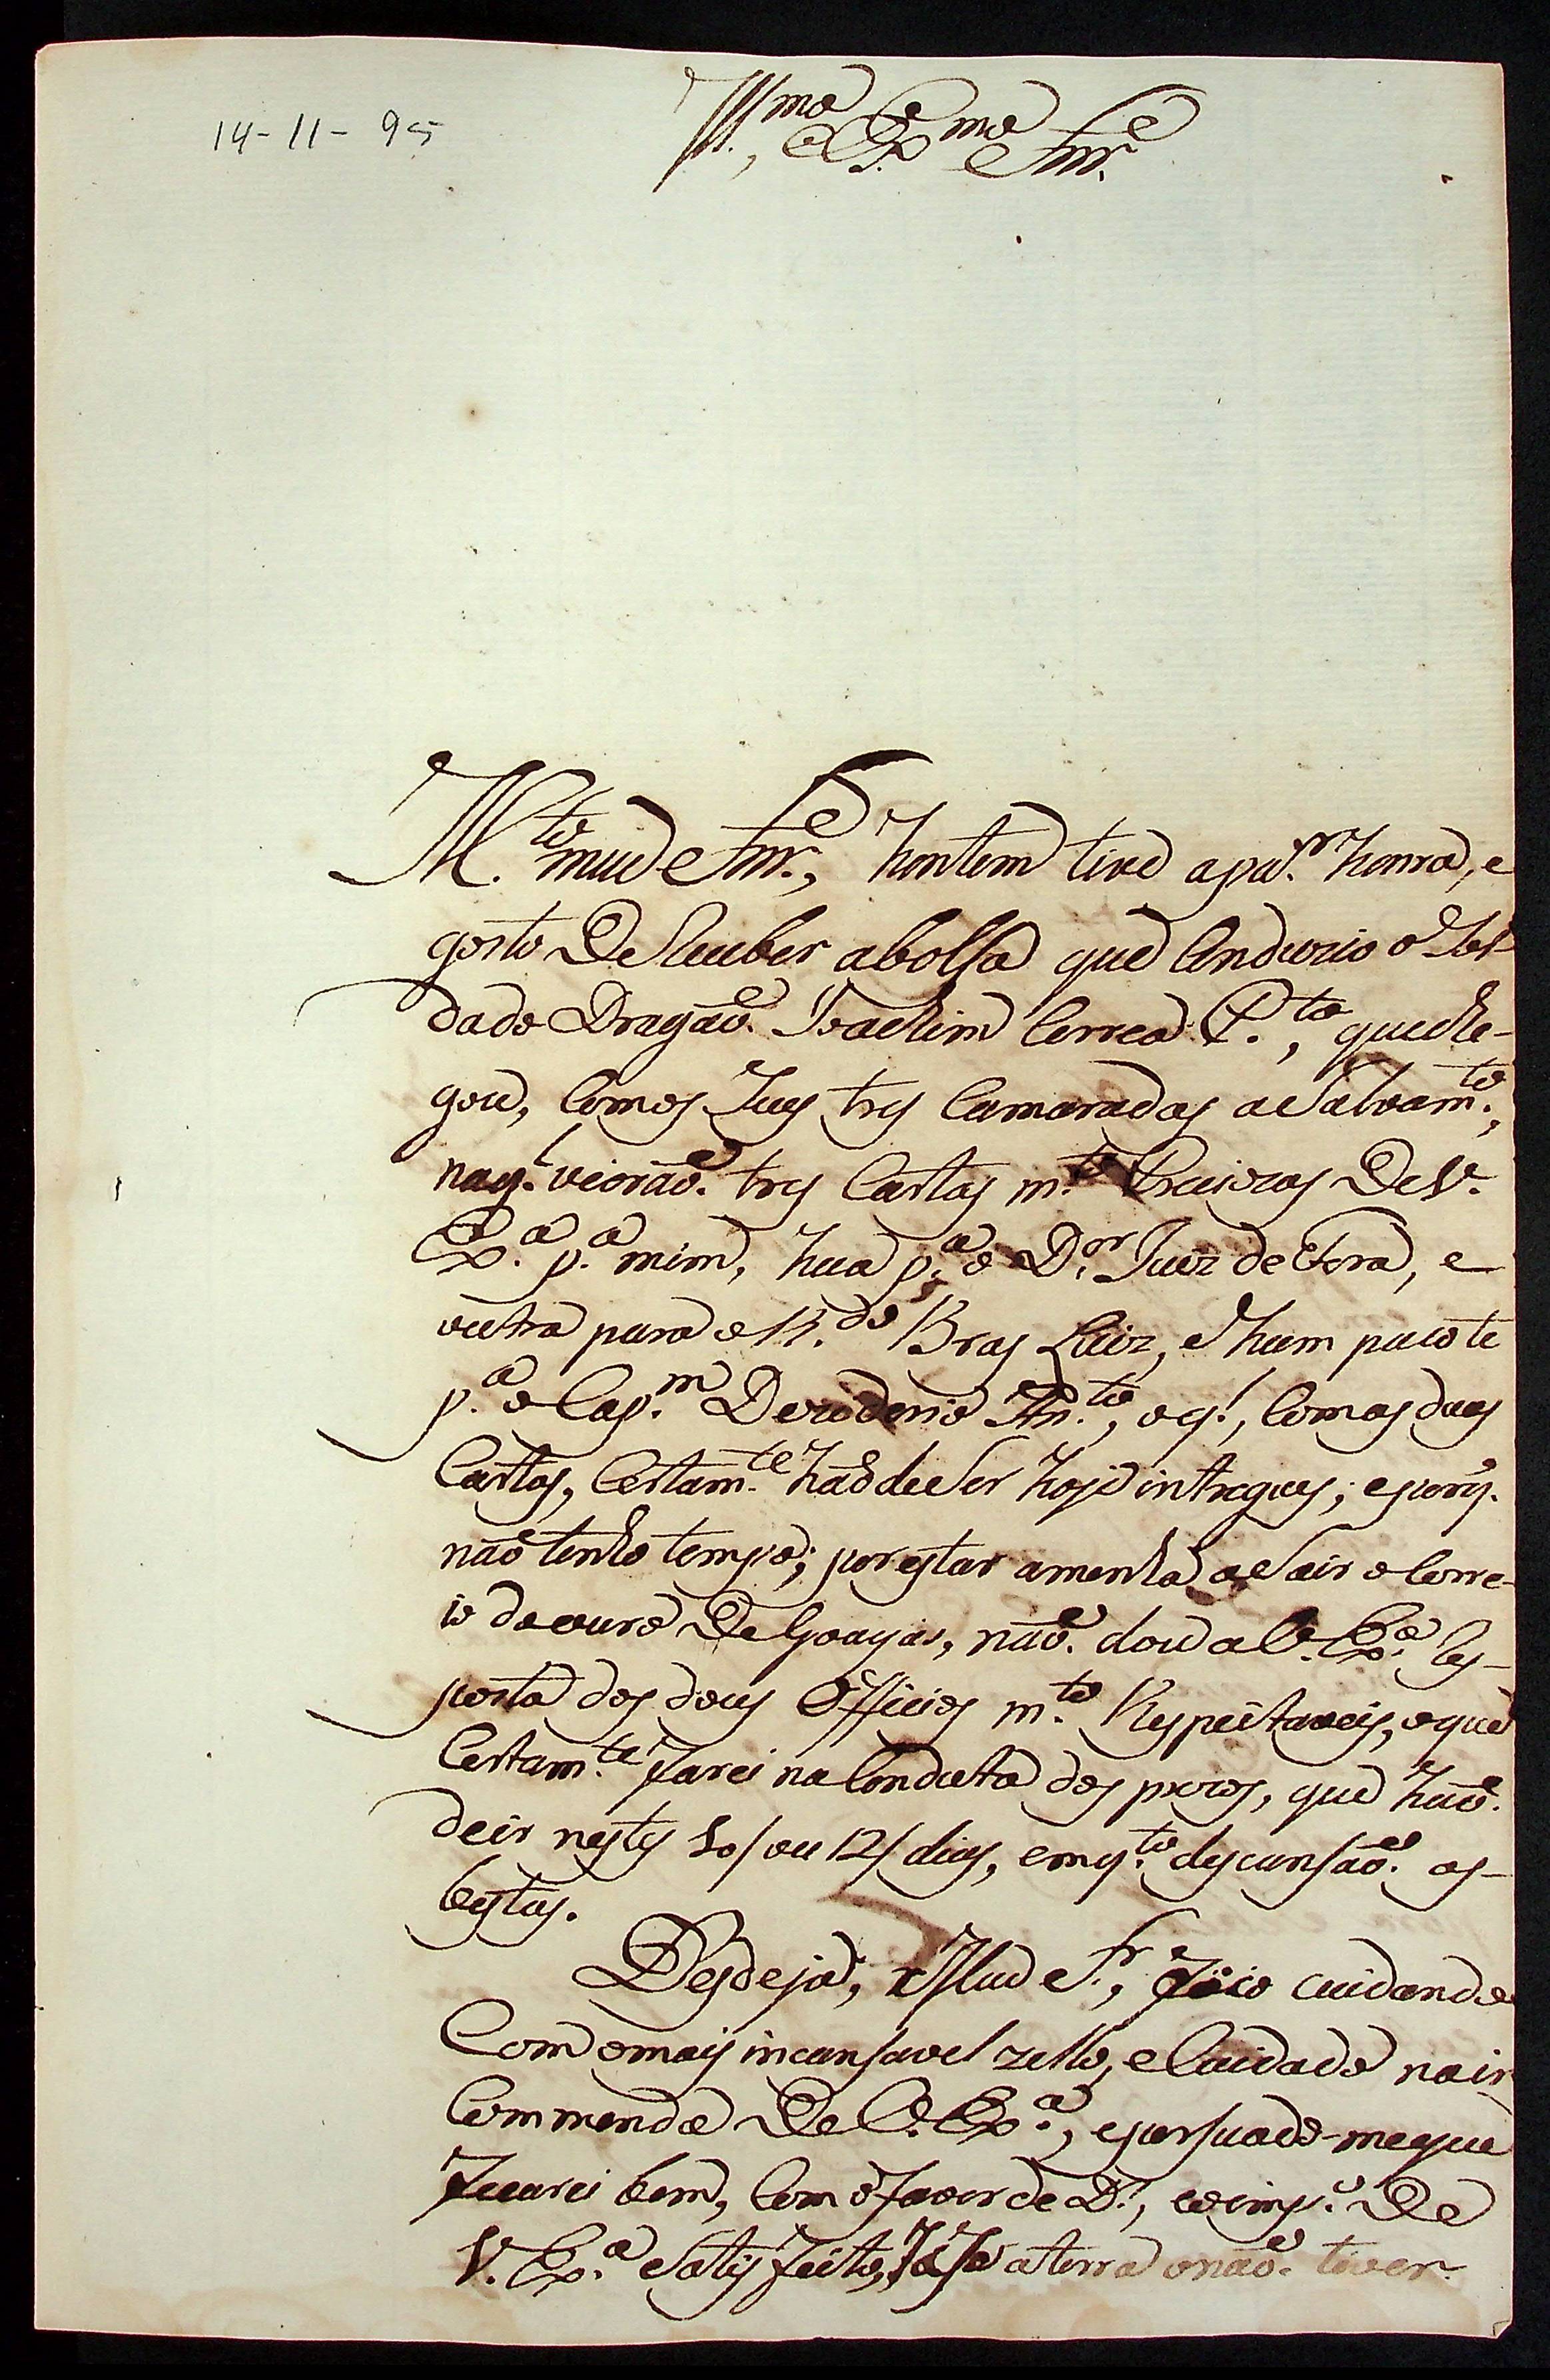 14-11-95
Ill.mo e Ex.mo Snr.
M.to meu Snr., hontem tive apar. honra, e
gosto De Receber abolsa que Condusio o Sol-
dado Dragaõ. Joachim Correa P.to, queche-
gou, Comos Seus tres Camaradas aSalvam.to,
naq.l vieraõ. tres Cartas m.to Preciozas DeV.
Ex.a p.a mim, hua p.a o D.or Juiz deFora, e
outra para o R.do Bras Luiz, e hum pacote
p.a o Cap.m Dezoderio oq.l, Comas duas
Cartas, Certam.te haõdeSer hoje intregues; eporq.
naõ tenho tempo; por estar amenhã aSair o Corre-
io doouro DeGoayas, naõ. dou aV. Ex.a Res-
posta dos dous Officios m.to Respeitaveis, oque
Certam.te farei naConduta dos prezos, que haõ.
deir nestes 10/ou 12/ dias, emq.to descansaõ. as
bestas.
Desdeja, meu Sr., fico cuidando
Com omais incansavel zello, eCuidado nain
Commenda DeV. Ex.a, epersuado-meque
ficarei bem, Com ofavor de D.s, De
V. Ex.a Satisfeito, aterra onaõ. tiver.